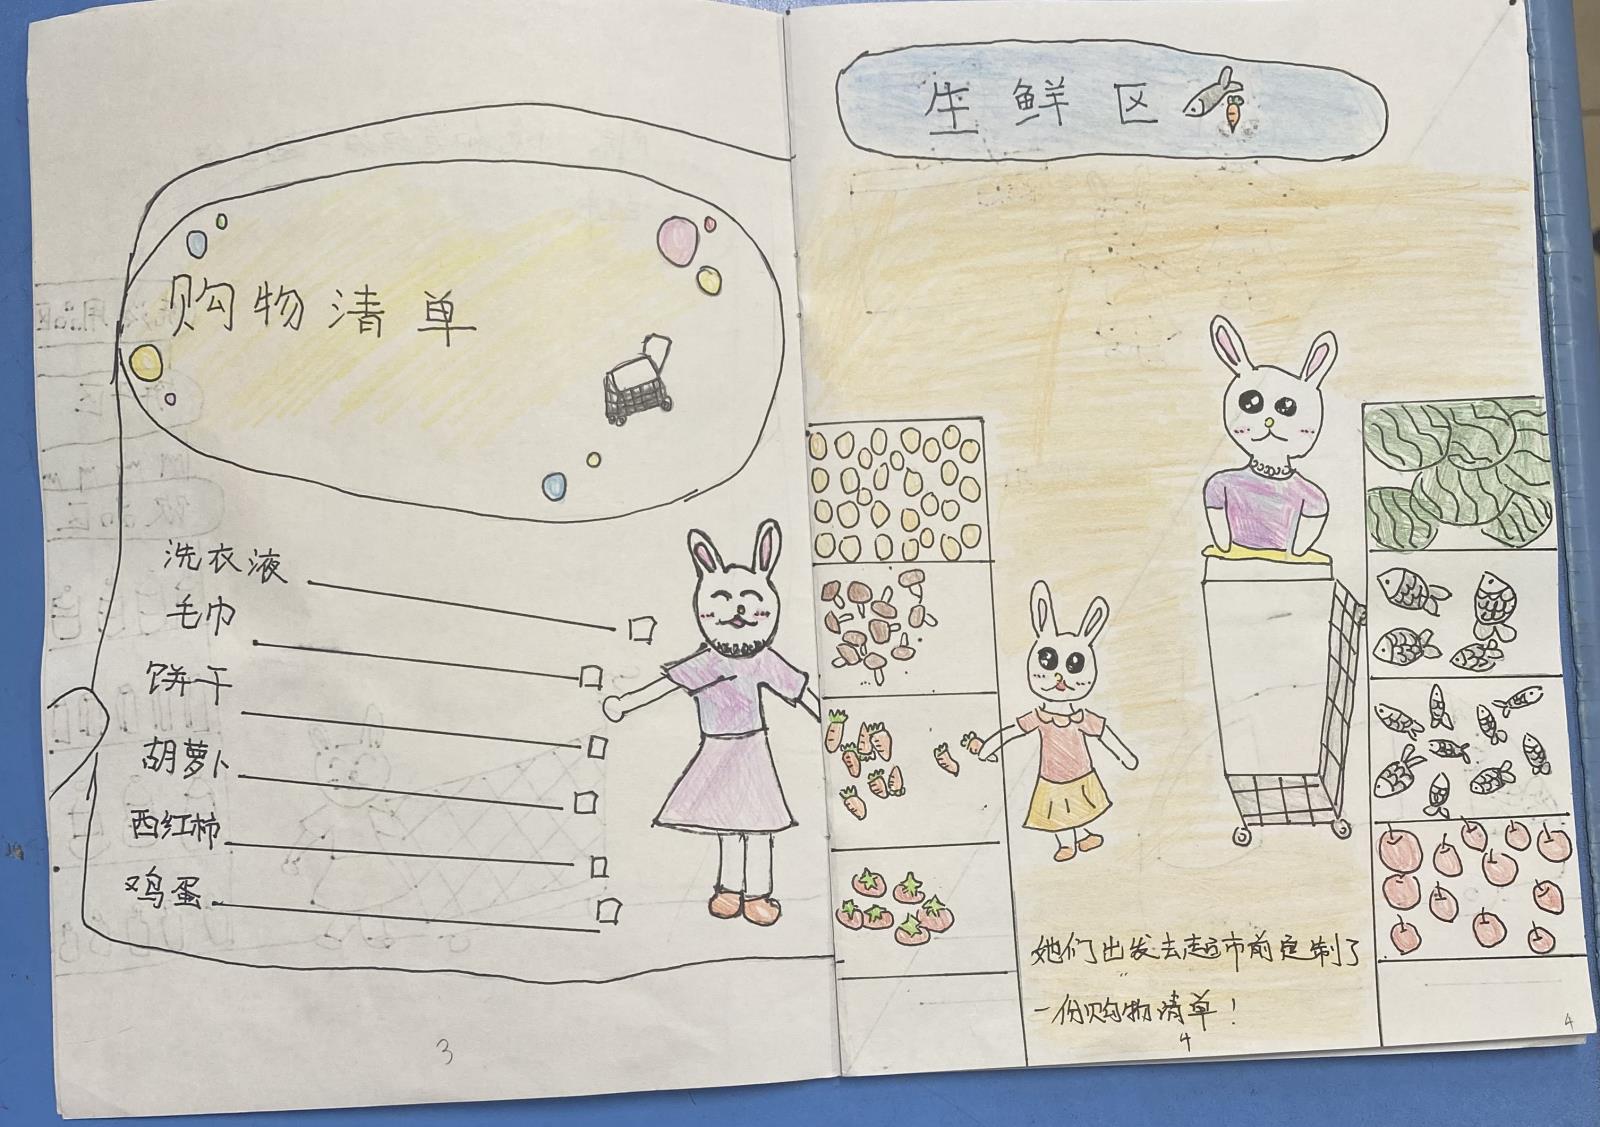 购物清单
洗衣液
毛巾
饼干
胡萝卜
西红柿
鸡蛋
3
生鲜区
她们出发去超市前定制了
一份购物清单！
4
4